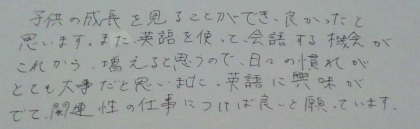 子供の成長を見ることができ、良かったと
思います。また、英語を使って、会話する機会が
これから、増えると思うので、日々の慣れが
とても大事だと思います。英語に興味が
でて、関連性の仕事につけば良いと願っています。